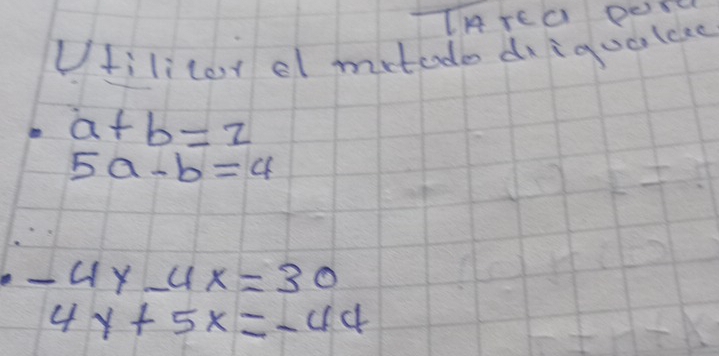 TArea para
Utilizar el metodo de igualac
• a + b = 2
5a - b = 4
...
• - 4y - 4x = 30
4y + 5x = -44